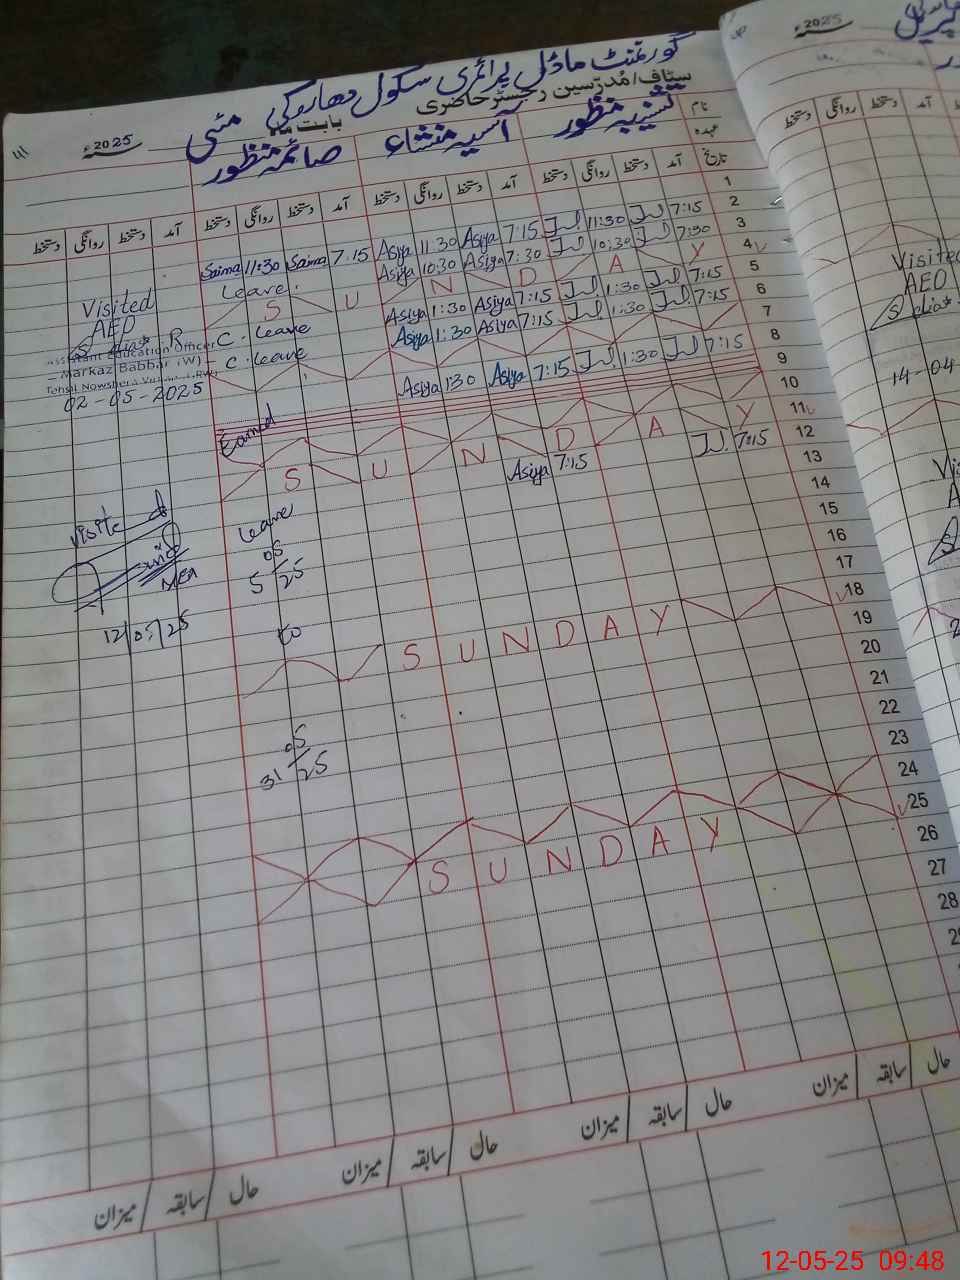 گورنمنٹ ماڈل پرائمری سکول دھاروکی
سٹاف/مُدرّسین رجسٹر حاضری
بابت ماہ مئی 2025ء
نام
عہدہ
منظور
آسیہ منشاء
صائمہ منظور
تاریخ
آمد دستخط روانگی دستخط آمد دستخط روانگی دستخط آمد دستخط روانگی دستخط آمد دستخط روانگی دستخط
1
2 7:15 11:30 7:15 Asiya 11:30 Asiya 7:15 Saima 11:30 Saima
3 7:30 10:30 7:30 Asiya 10:30 Asiya Leave
4 S U N D A Y
5 7:15 1:30 7:15 Asiya 1:30 Asiya C. Leave
6 7:15 1:30 7:15 Asiya 1:30 Asiya C. Leave
7
8 7:15 1:30 7:15 Asiya 1:30 Asiya
9
10
11 S U N D A Y
12 7:15 7:15 Asiya
13
14
15
16
17
18 S U N D A Y
19
20
21
22
23
24
25 S U N D A Y
26
27
28
Visited
AEO
Assistant Education Officer
Markaz Babbar (W)
02-05-2025
Earned
Leave
5 05 25
to
31 05 25
Visited
MEA
12/05/25
حال سابقہ میزان
حال سابقہ میزان
حال سابقہ میزان
حال سابقہ میزان
2025ء
آمد دستخط روانگی دستخط
Visited
AEO
14-04
12-05-25 09:48